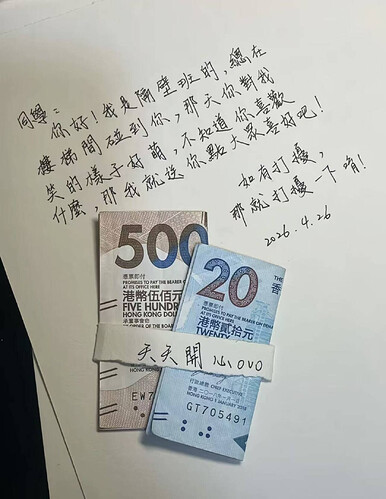 同學：
你好！我是隔壁班的，總在
樓梯間碰到你，那天你對我
笑的樣子好萌，不知道你喜歡
什麼，那我就送你點大眾喜好吧！
如有打擾，
那就打擾一下唷！
2026.4.26
500
憑票即付
PROMISES TO PAY THE BEARER ON
AT ITS OFFICE HERE
港幣伍佰元
FIVE HUNDR
HONG KONG DOL
承董事會命
ORDER OF THE BOAR
20
THE
香
憑票即付
PROMISES TO PAY THE BEARER ON DEMA
AT ITS OFFICE HERE
港幣貳拾元
TWENTY
天天開心OVO
HONG KONG
EW7
行政總裁 CHIEF EXECUTIVE
HONG KONG 1 JANUARY 2018
GT705491